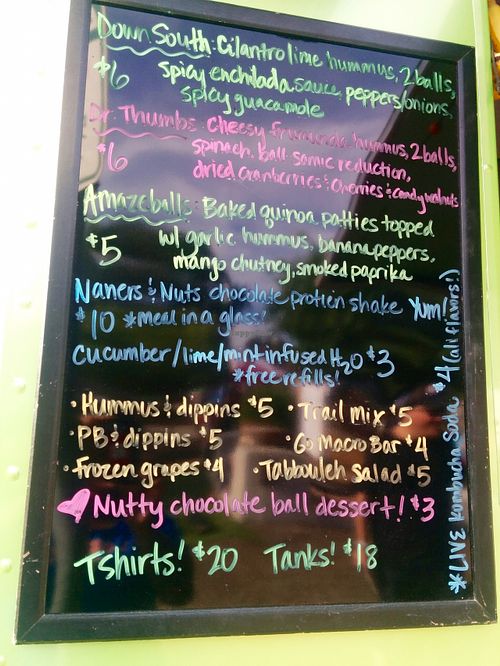 Down South: Cilantro lime hummus, 2 balls,
$6 spicy enchilada sauce, peppers/onions,
spicy guacamole
Dr. Thumbs: Cheesy frumunda hummus, 2 balls,
$6 spinach, ball-samic reduction,
dried cranberries & cherries & candy walnuts
Amazeballs: Baked quinoa patties topped
$5 w/ garlic hummus, banana peppers,
mango chutney, smoked paprika
Naners & Nuts chocolate protein shake Yum!
$10 *meal in a glass!
Cucumber/lime/mint infused H2O $3
*free refills!
• Hummus & dippins $5 • Trail Mix $5
• PB & dippins $5 • Go Macro Bar $4
• Frozen grapes $4 • Tabbouleh salad $5
Nutty chocolate ball dessert! $3
Tshirts! $20 Tanks! $18
*LIVE Kombucha Soda $4 (all flavors!)